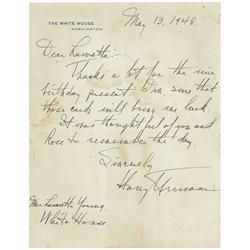 THE WHITE HOUSE
WASHINGTON
May 13, 1948.
Dear Lauretta:-
Thanks a lot for the nice
birthday present. I'm sure that
those cards will bring me luck.
It was thoughtful of you and
Rose to remember the day.
Sincerely
Harry Truman
Lauretta Young,
White House.